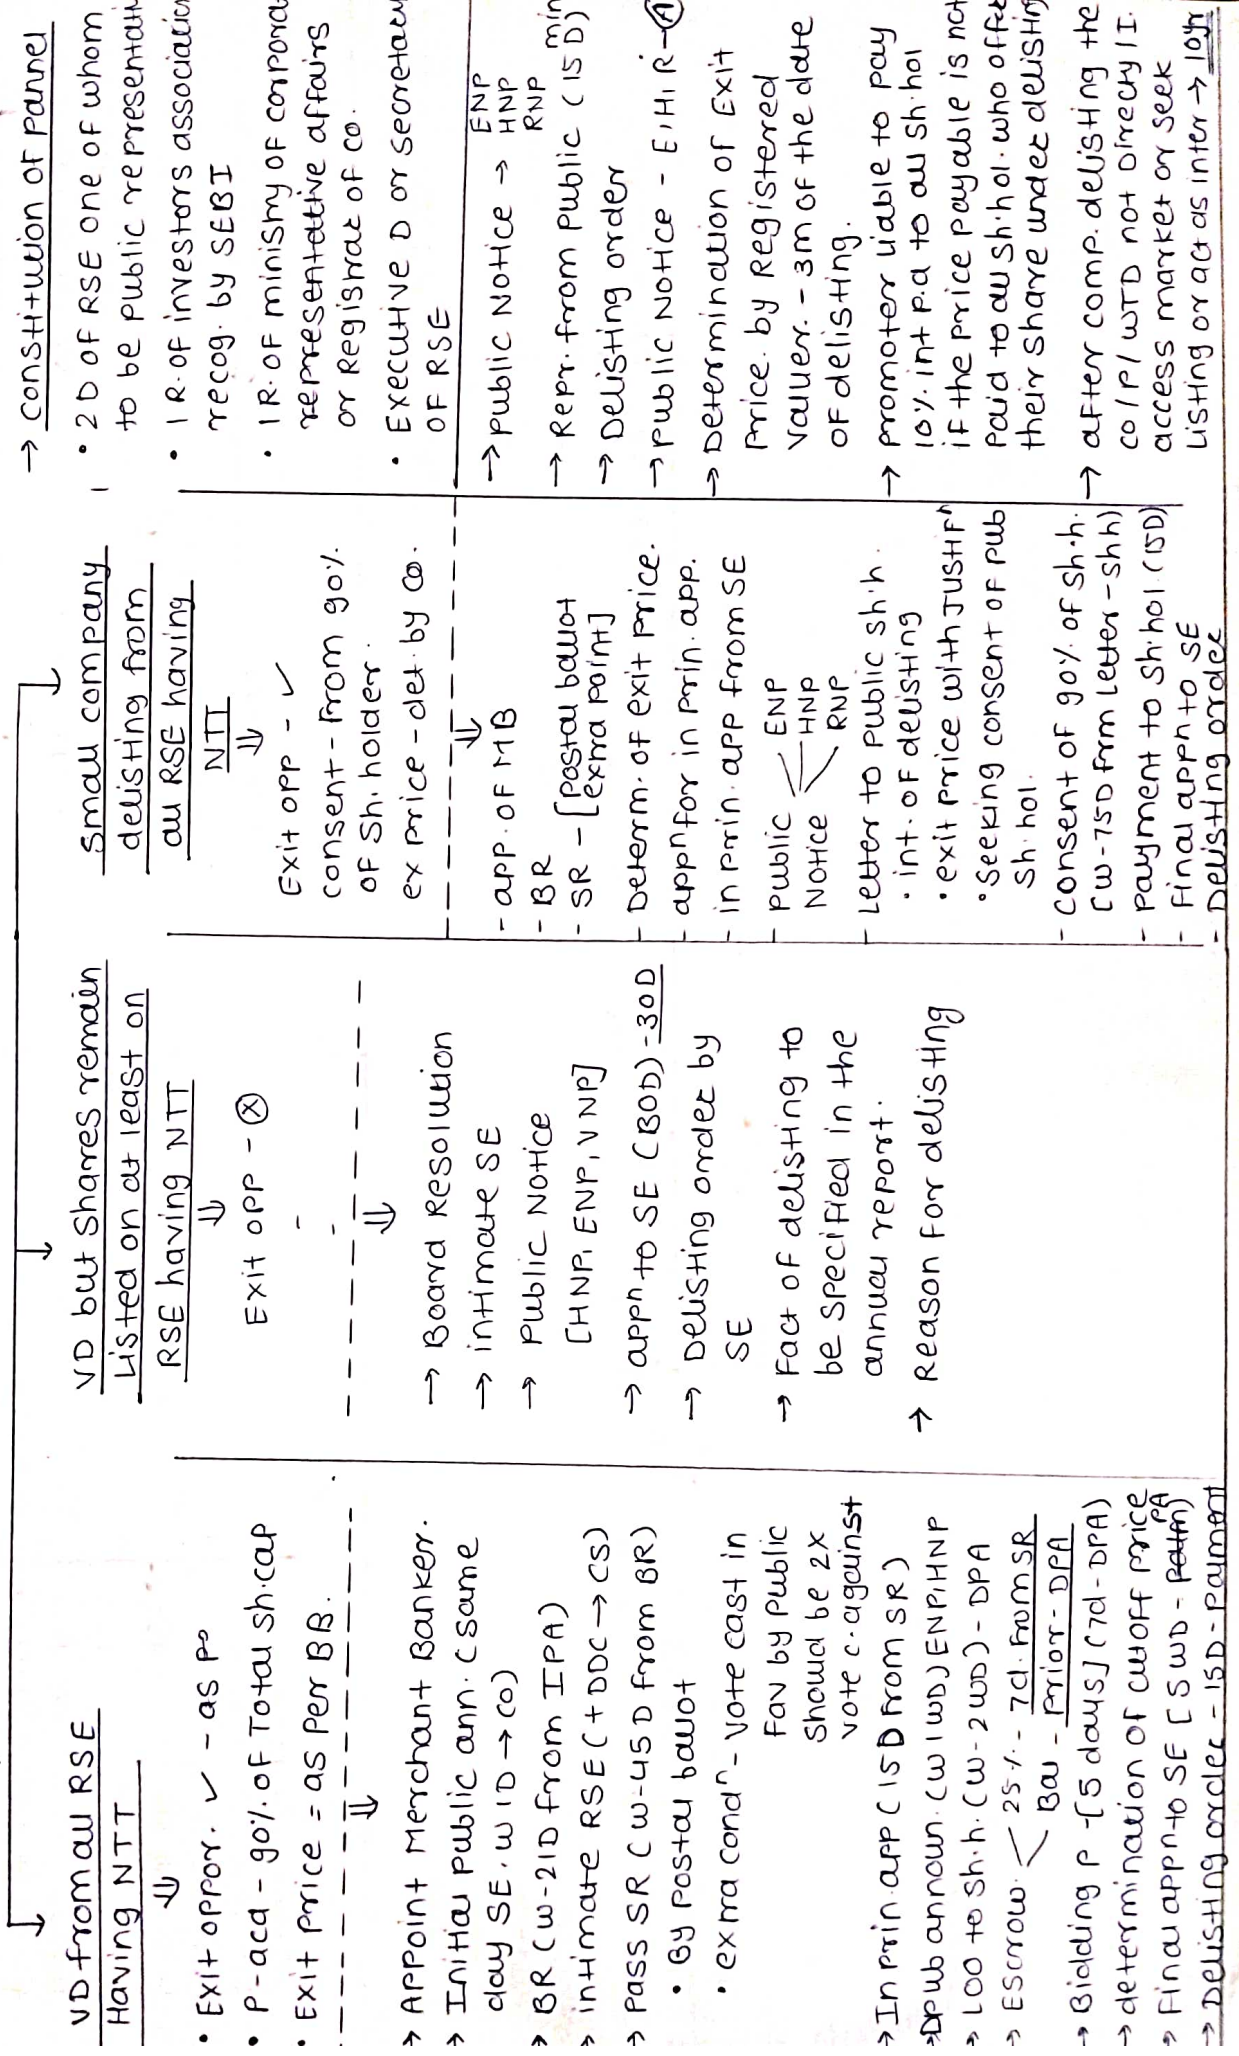 VD from all RSE
Having NTT
⇓
• Exit oppor. ✓ - as P
• P - acq - 90% of Total sh.cap
• Exit price = as per BB.
⇓
→ Appoint Merchant Banker.
→ Initial public ann. (same
day SE. W 1D → CO)
→ BR (W-21D from IPA)
→ intimate RSE (+ DDC → CS)
→ Pass SR (W-45D from BR)
• By postal ballot
• extra condⁿ - vote cast in
fav by public
should be 2X
vote c. against
→ In prin. app (15D from SR)
→ D pub announ. (W 1WD) ENP, HNP
→ LOO to sh.h. (W-2WD) - DPA
→ Escrow < 25% - 7d. from SR
Bal - prior - DPA
→ Bidding P - [5 days] (7d - DPA)
→ determination of cutoff price
→ Final appn to SE [5WD - PA)
→ Delisting order - 15D - payment
VD but shares remain
Listed on at least on
RSE having NTT
⇓
Exit opp - ⓧ
⇓
→ Board Resolution
→ intimate SE
→ Public Notice
[HNP, ENP, VNP]
→ appⁿ to SE (BOD) - 30D
→ Delisting order by
SE
→ Fact of delisting to
be specified in the
annual report.
→ Reason for delisting
Small company
delisting from
all RSE having
NTT
⇓
Exit opp - ✓
consent - from 90%
of sh. holder.
ex price - det. by co.
⇓
- app. of MB
- BR
- SR - [postal ballot
extra point]
- Determ. of exit price.
- appⁿ for in prin. app.
- in prin. app from SE
- Public Notice < ENP
HNP
RNP
- Letter to public sh.h.
• int. of delisting
• exit price with JUSTIFⁿ
• Seeking consent of pub
sh.hol.
- consent of 90% of sh.h.
(W-75D frm letter - shh)
- payment to sh.hol. (15D)
- Final appn to SE
- Delisting order
→ constitution of pannel
• 2D of RSE one of whom
to be public representati
• 1R. of investors association
recog. by SEBI
• 1R. of ministry of corpora
representative affairs
or Registrar of co.
• Executive D or secretary
of RSE
→ public Notice → ENP
HNP
RNP
→ Repr. from public (15D) min
→ Delisting order
→ public Notice - E, H, R - Ⓐ
→ Determination of Exit
price. by Registered
valuer. - 3m of the date
of delisting.
→ promoter liable to pay
10% int p.a to all sh.hol
if the price payable is not
paid to all sh.hol. who offe
their share under delisting
→ after comp. delisting the
co/P/WTD not Directly/I.
access market or seek
listing or act as inter → 10yr